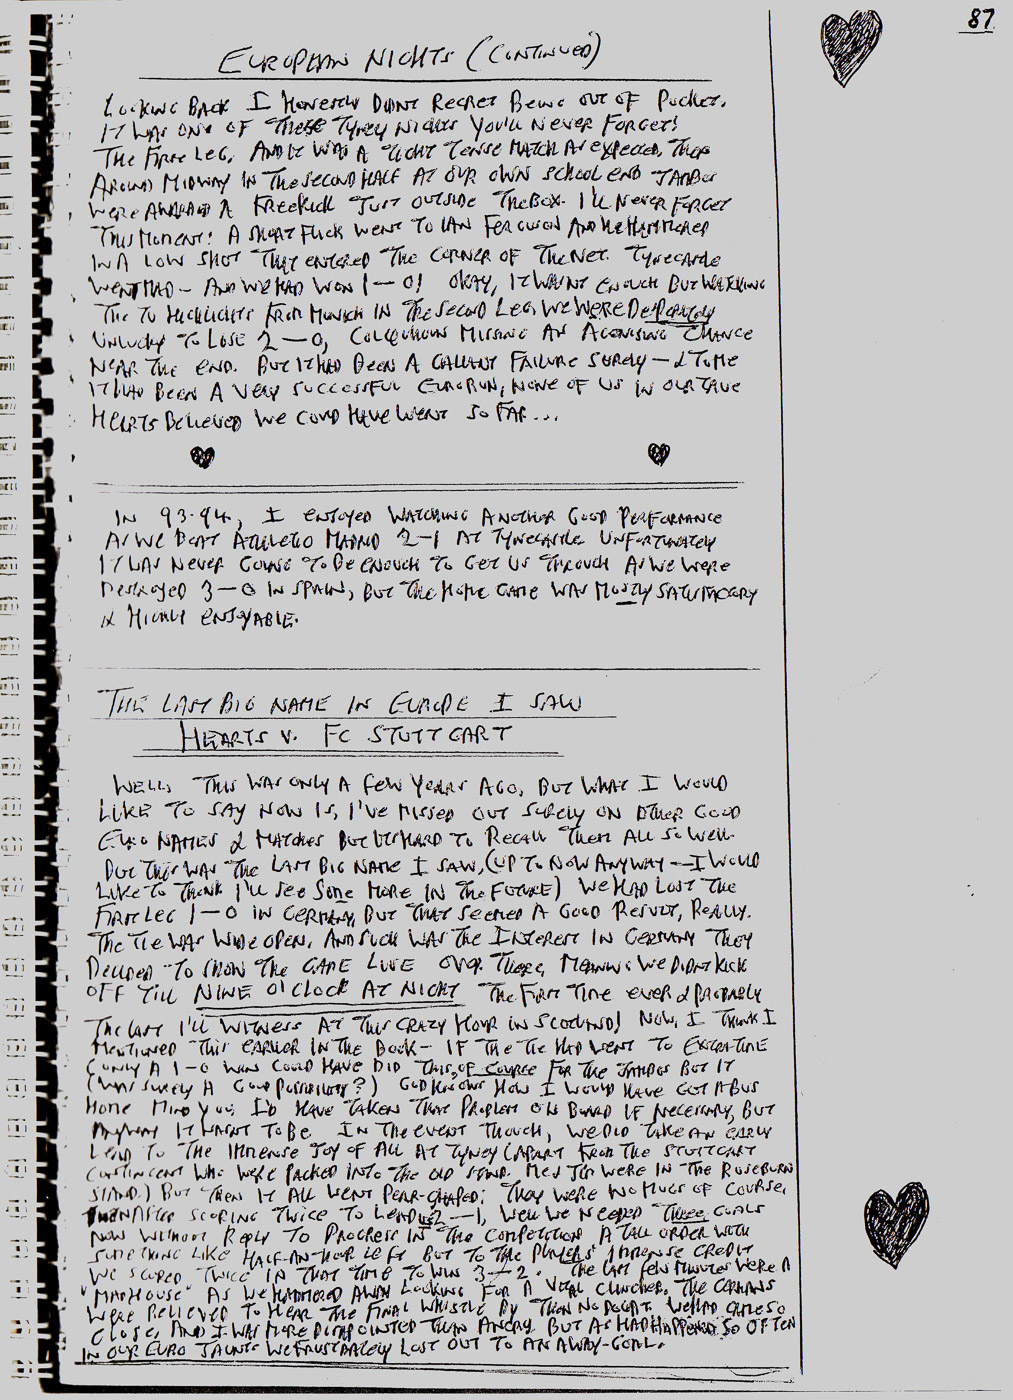 87
EUROPEAN NIGHTS (CONTINUED)
LOOKING BACK I HONESTLY DIDNT REGRET BEING OUT OF POCKET.
IT WAS ONE OF THESE TYNEY NIGHTS YOU'LL NEVER FORGET!
THE FIRST LEG, AND IT WAS A TIGHT TENSE MATCH AS EXPECTED, THEN
AROUND MIDWAY IN THE SECOND HALF AT OUR OWN SCHOOL END JAMBOS
WERE AWARDED A FREEKICK JUST OUTSIDE THE BOX. I'LL NEVER FORGET
THIS MOMENT! A SHORT FLICK WENT TO IAN FERGUSON AND HE HAMMERED
IN A LOW SHOT THAT ENTERED THE CORNER OF THE NET. TYNECASTLE
WENT MAD - AND WE HAD WON 1-0! OKAY, IT WASNT ENOUGH BUT WATCHING
THE TV HIGHLIGHTS FROM MUNICH IN THE SECOND LEG WE WERE DESPERATELY
UNLUCKY TO LOSE 2-0, COLQUHOUN MISSING AN AGONISING CHANCE
NEAR THE END. BUT IT HAD BEEN A GALLANT FAILURE SURELY - & TO ME
IT HAD BEEN A VERY SUCCESSFUL EURO RUN, NONE OF US IN OUR TRUE
HEARTS BELIEVED WE COULD HAVE WENT SO FAR...
IN 93-94, I ENJOYED WATCHING ANOTHER GOOD PERFORMANCE
AS WE BEAT ATHLETICO MADRID 2-1 AT TYNECASTLE UNFORTUNATELY
IT WAS NEVER GOING TO BE ENOUGH TO GET US THROUGH AS WE WERE
DESTROYED 3-0 IN SPAIN, BUT THE HOME GAME WAS MOSTLY SATISFACTORY
& HIGHLY ENJOYABLE.
THE LAST BIG NAME IN EUROPE I SAW
HEARTS V. FC STUTTGART
WELL, THIS WAS ONLY A FEW YEARS AGO, BUT WHAT I WOULD
LIKE TO SAY NOW IS, I'VE MISSED OUT SURELY ON OTHER GOOD
EURO NAMES & MATCHES BUT ITS HARD TO RECALL THEM ALL SO WELL.
BUT THIS WAS THE LAST BIG NAME I SAW, (UP TO NOW ANYWAY - I WOULD
LIKE TO THINK I'LL SEE SOME MORE IN THE FUTURE) WE HAD LOST THE
FIRST LEG 1-0 IN GERMANY, BUT THAT SEEMED A GOOD RESULT, REALLY.
THE TIE WAS WIDE OPEN. AND SUCH WAS THE INTEREST IN GERMANY THEY
DECIDED TO SHOW THE GAME LIVE OVER THERE, MEANING WE DIDNT KICK
OFF TILL NINE O'CLOCK AT NIGHT THE FIRST TIME EVER & PROBABLY
THE LAST I'LL WITNESS AT THIS CRAZY HOUR IN SCOTLAND! NOW, I THINK I
MENTIONED THIS EARLIER IN THE BOOK - IF THE TIE HAD WENT TO EXTRA-TIME
(ONLY A 1-0 WIN COULD HAVE DID THIS, OF COURSE FOR THE JAMBOS BUT IT
(WAS SURELY A GOOD POSSIBILITY?) GOD KNOWS HOW I WOULD HAVE GOT A BUS
HOME MIND YOU, I'D HAVE TAKEN THAT PROBLEM ON BOARD IF NECESSARY, BUT
ANYWAY IT WASNT TO BE. IN THE EVENT THOUGH, WE DID TAKE AN EARLY
LEAD TO THE IMMENSE JOY OF ALL AT TYNEY (APART FROM THE STUTTGART
CONTINGENT WHO WERE PACKED INTO THE OLD STAND. ME & JIM WERE IN THE ROSEBURN
STAND.) BUT THEN IT ALL WENT PEAR-SHAPED; THEY WERE NO MUGS OF COURSE,
THEN AFTER SCORING TWICE TO LEAD US 2-1, WELL WE NEEDED THREE GOALS
NOW WITHOUT REPLY TO PROGRESS IN THE COMPETITION A TALL ORDER WITH
SOMETHING LIKE HALF-AN-HOUR LEFT BUT TO THE PLAYERS' IMMENSE CREDIT
WE SCORED TWICE IN THAT TIME TO WIN 3-2. THE LAST FEW MINUTES WERE A
"MADHOUSE" AS WE HAMMERED AWAY LOOKING FOR A VITAL CLINCHER. THE GERMANS
WERE RELIEVED TO HEAR THE FINAL WHISTLE BY THEN NO DOUBT. WE HAD CAME SO
CLOSE, AND I WAS MORE DISAPPOINTED THAN ANGRY BUT AS HAD HAPPENED SO OFTEN
IN OUR EURO JAUNTS WE FRUSTRATELY LOST OUT TO AN AWAY-GOAL.